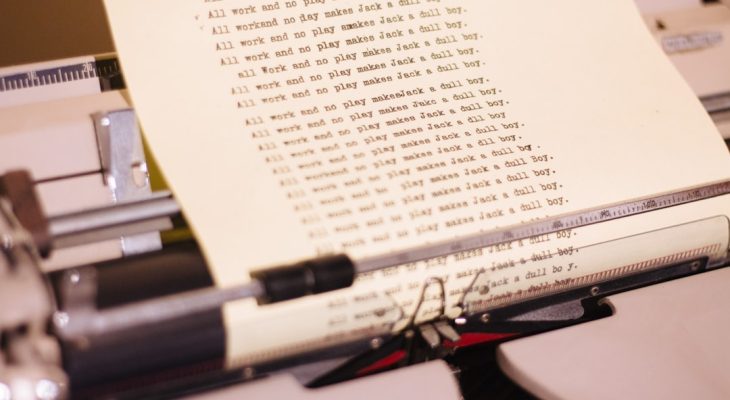 All work and no play makes Jack a dull boy.
All workand no play makes Jack a dull boy.
All work and no play makes Jack a dull boy.
all Work and no play makes Jack a dull boy.
All work and no play makes Jack a dull boy.
All work and no play makesJack a dull boy.
All work and no play makes Jakc a dull boy.
All work and no play makes Jack a dull boy.
All work and no play makes Jack a dll boy
All workand no play makes Jack a dull boy.
All work and no play makes Jack a dull Boy.
All work and no play makes Jack a dull boy.
All work and no play makes Jack a dull boy.
All work and no play makes Jack a dull boy.
All work and no play makes Jack a dull boy.
All work and no play makes Jack a dull boy.
All work and no play makes Jack a dull bo y.
All work and no